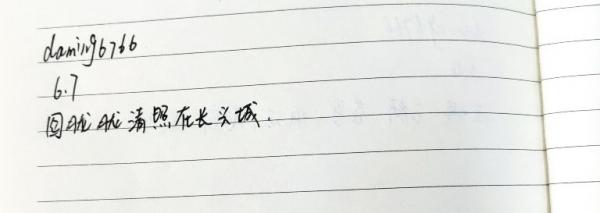 daming6766
6.7
回 清照在长兴城.